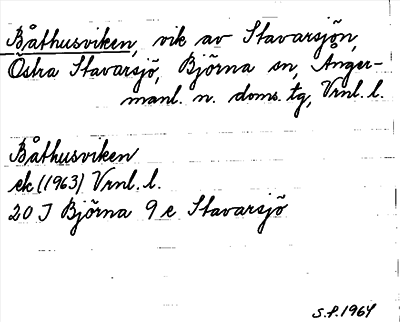 Båthusviken, vik av Stavarsjön,
Östra Stavarsjö, Björna sn, Ånger-
manl. n. doms. tg, Vrnl. l.
Båthusviken
ek (1963) Vrnl. l.
20 J Björna 9 e Stavarsjö
S.f. 1964